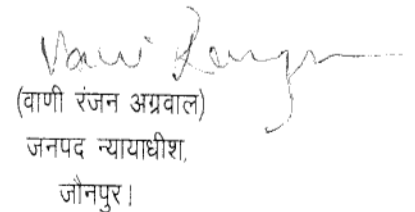 Vani Ranjan
(वाणी रंजन अग्रवाल)
जनपद न्यायाधीश,
जौनपुर।